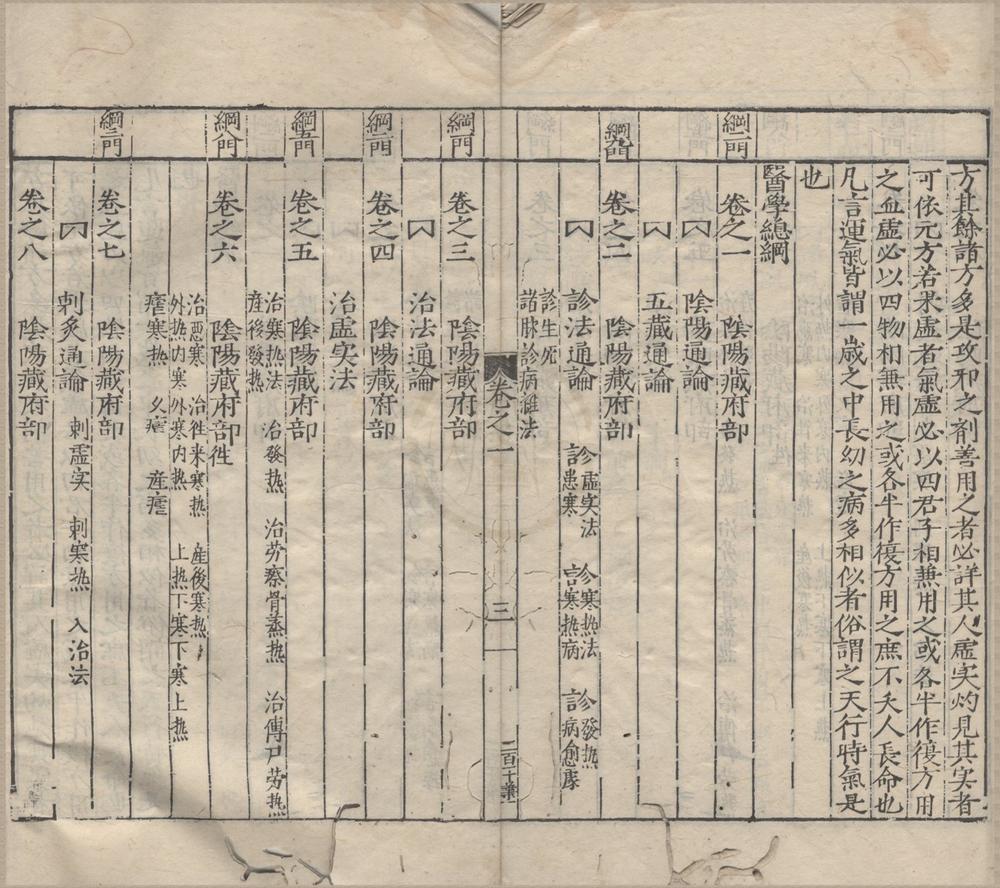 方其餘諸方多是攻邪之劑善用之者必詳其人虛实灼見其实者
可依元方若果虛者氣虛必以四君子相兼用之或各半作復方用
之血虛必以四物相兼用之或各半作復方用之庶不夭人長命也
凡言運氣皆謂一歲之中長幼之病多相似者俗謂之天行時氣是
也
醫學總綱
綱一門
卷之一 陰陽藏府部
陰陽通論
五藏通論
卷之二 陰陽藏府部
診法通論 診虛实法 診患寒 診寒热法 言寒热病 診發热 診病愈
診生死
諸脉診病雜法
卷之一
三
卷之三 陰陽藏府部
治法通論
卷之四 陰陽藏府部
治虛实法
卷之五 陰陽藏府部
治寒热法 治發热 治劳瘵骨蒸热 治傳尸劳热
産後發热
卷之六 陰陽藏府部
治惡寒 治徃来寒热 産後寒热
外热内寒 外寒内热 上热下寒 下寒上热
瘧寒热 久瘧 産瘧
卷之七 陰陽藏府部
刺灸通論 刺虛实 刺寒热 入治法
卷之八 陰陽藏府部